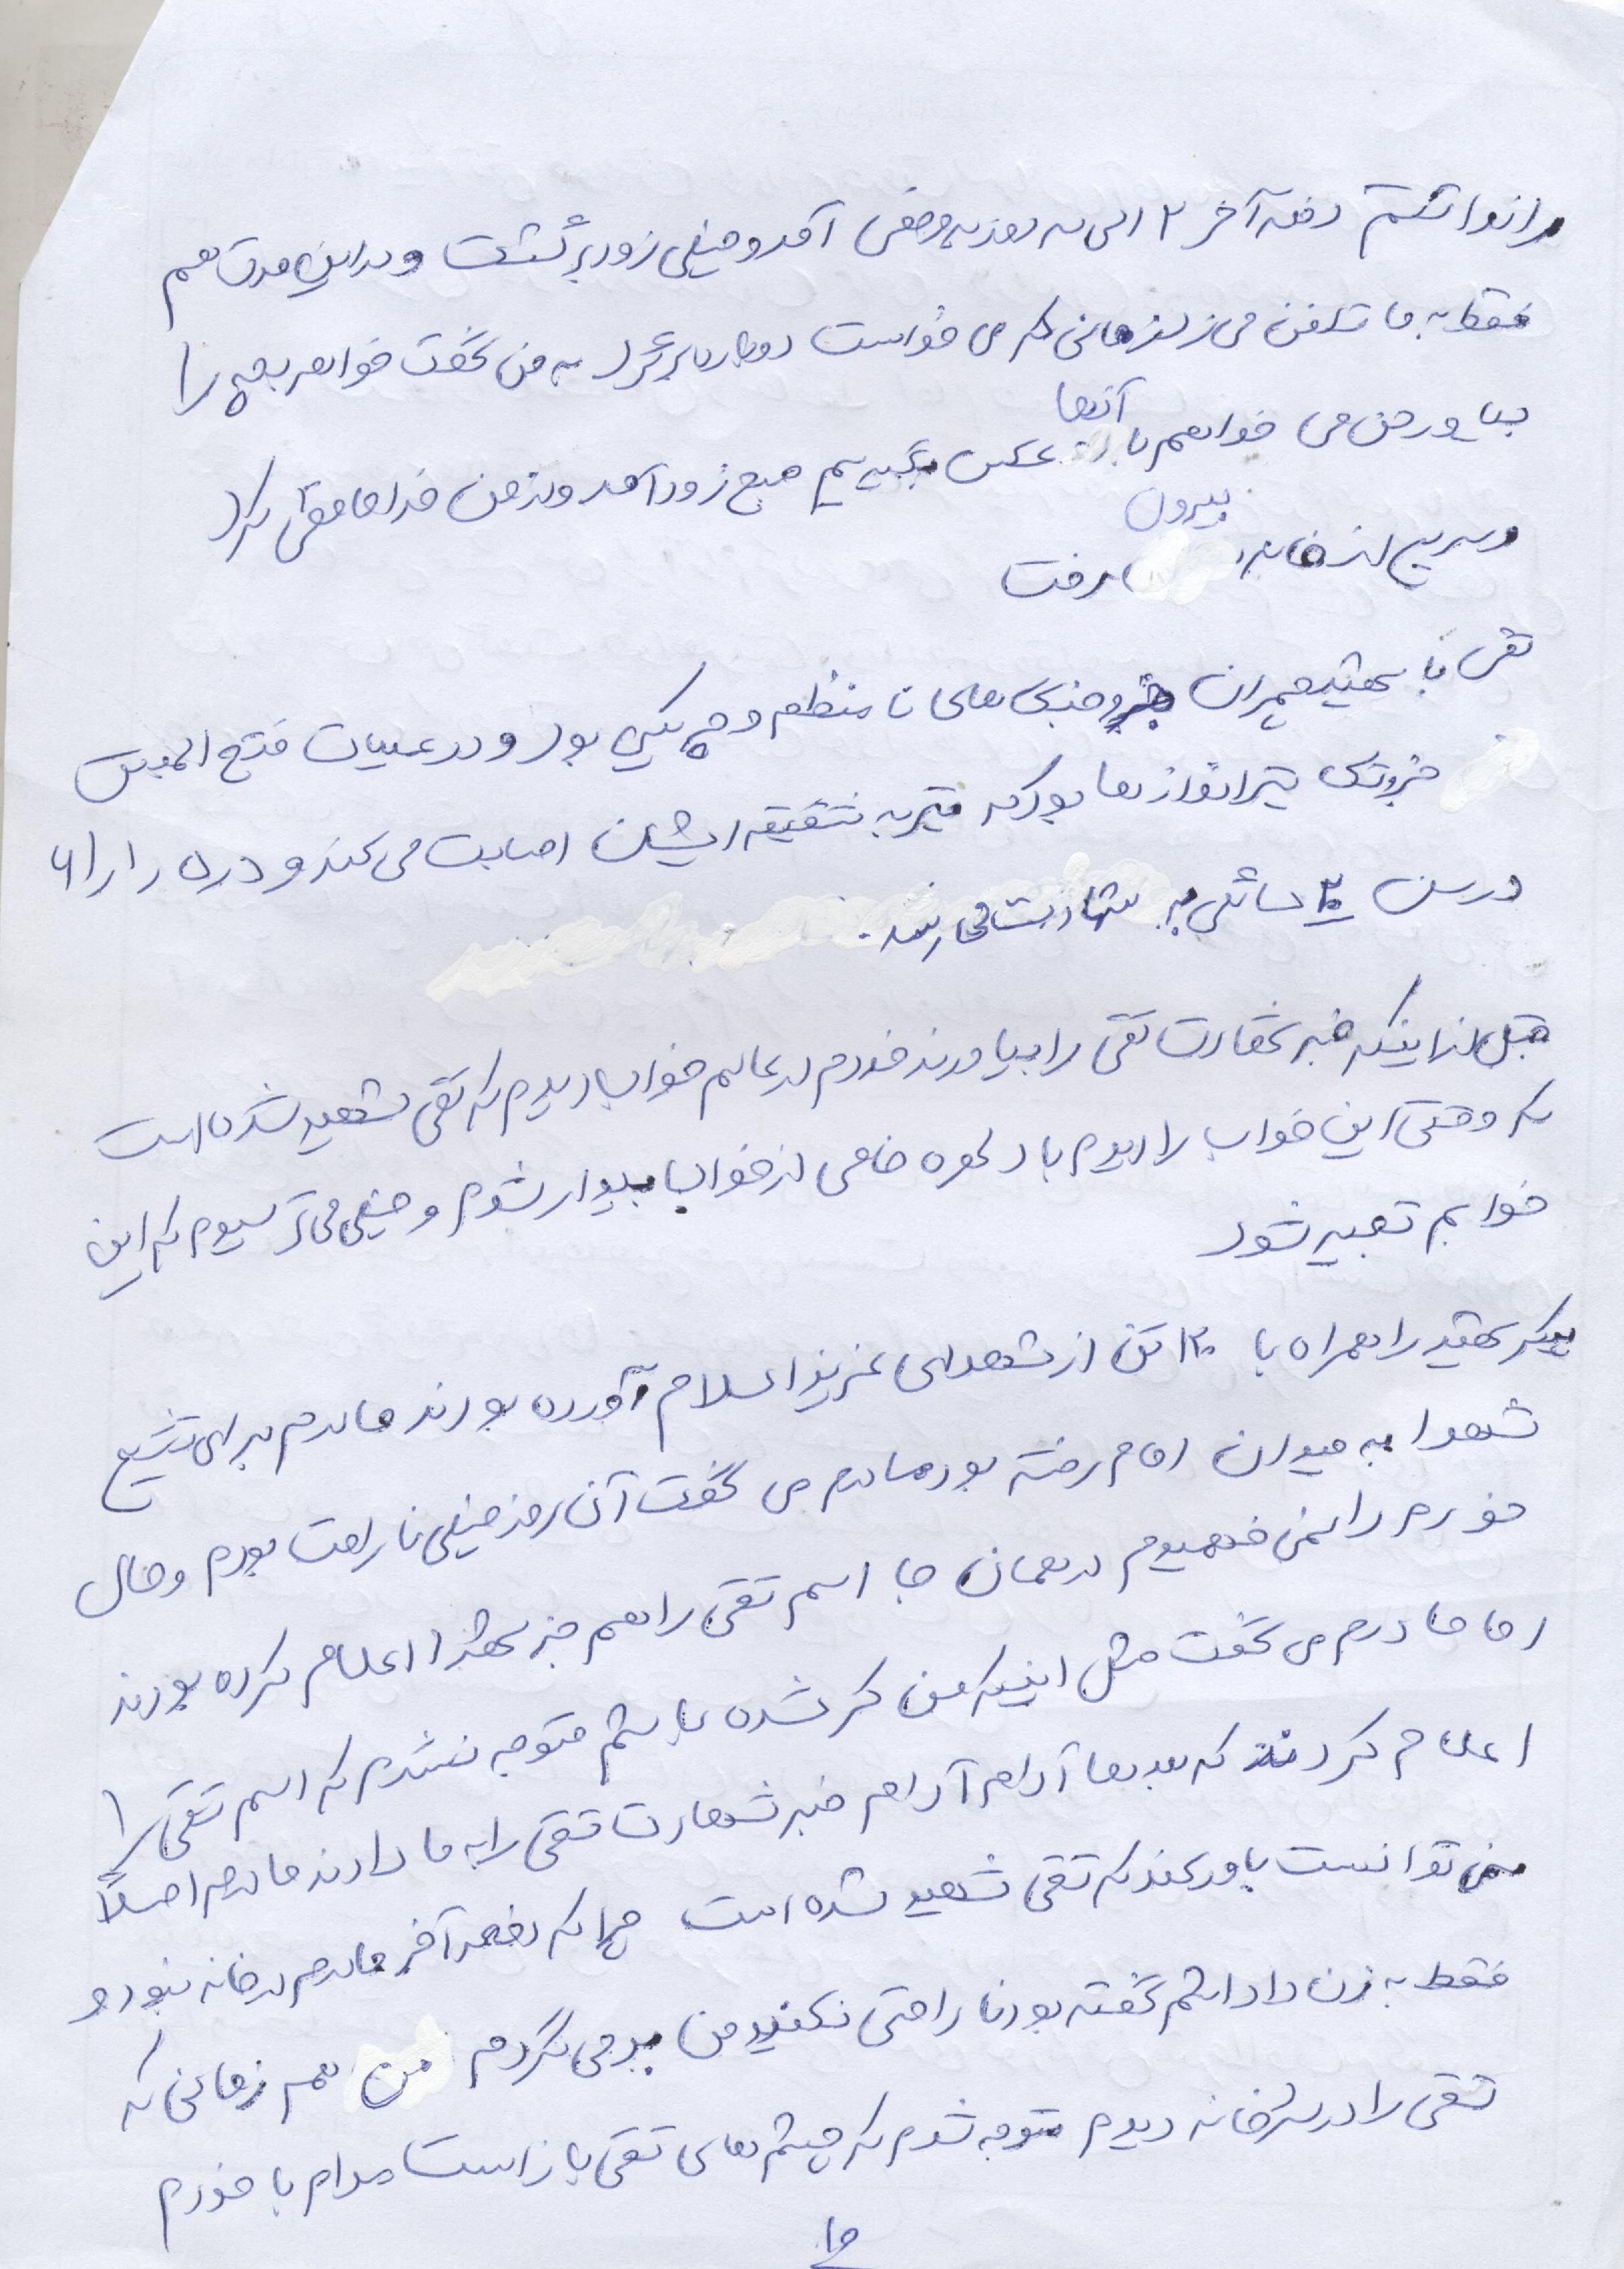 را نداشتم دفعه آخر ۲ الی سه روز به مرخصی آمد و خیلی زود برگشت و در این مدت هم
فقط به ما تلفن می زد زمانی که می خواست دوباره برگردد به من گفت خواهر بچه را
بیاور من می خواهم با آنها عکس بگیریم صبح زود آمد و از من خداحافظی کرد
و سریع از خانه بیرون رفت
تقی با شهید چمران جزو جنگ های نامنظم و چریکی بود و در عملیات فتح المبین
جزو تک تیراندازها بود که تیر به شقیقه ایشان اصابت می کند و در
در سن ۲۰ سالگی به شهادت می رسند.
قبل از اینکه خبر شهادت تقی را بیاورند خودم در عالم خواب دیدم که تقی شهید شده است
که وقتی این خواب را دیدم با دلهره خاصی از خواب بیدار شدم و خیلی می ترسیدم که این
خوابم تعبیر شود
پیکر شهید را همراه با ۱۲۰ تن از شهدای عزیز اسلام آورده بودند مادرم برای تشییع
شهدا به میدان امام رفته بود مادرم می گفت آن روز خیلی ناراحت بودم و حال
خودم را نمی فهمیدم در همان جا اسم تقی را هم جزء شهدا اعلام کرده بودند
اما مادرم می گفت مثل اینکه من کر شده باشم متوجه نشدم که اسم تقی را
اعلام کردند که بعدها آرام آرام خبر شهادت تقی را به ما دادند مادرم اصلاً
نمی توانست باور کند که تقی شهید شده است چرا که دفعه آخر مادرم در خانه نبود و
فقط به زن داداشم گفته بود ناراحتی نکنید من برمی گردم من هم زمانی که
تقی را در سردخانه دیدم متوجه شدم که چشم های تقی باز است مدام با خودم